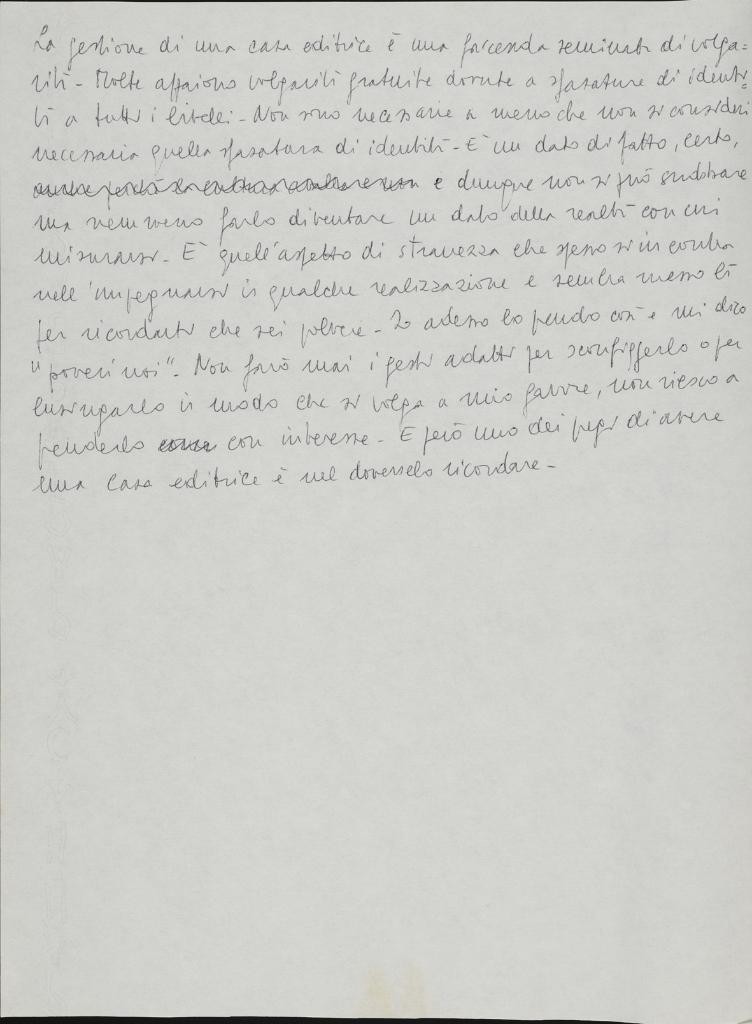 La gestione di una casa editrice è una faccenda seminata di volga=
rità - Molte appaiono volgarità gratuite dovute a sfasature di identi=
tà a tutti i livelli - Non sono necessarie a meno che non si consideri
necessaria quella sfasatura di identità - È un dato di fatto, certo,
e dunque non si può snobbare
ma nemmeno farlo diventare un dato della realtà con cui
misurarsi - È quell'aspetto di stranezza che spesso si incontra
nell'impegnarsi in qualche realizzazione e sembra messo lì
per ricordarti che sei polvere - Io adesso lo prendo così e mi dico
"poveri noi". Non farò mai i gesti adatti per sconfiggerlo o per
lusingarlo in modo che si volga a mio favore, non riesco a
prenderlo con interesse - E però uno dei pregi di avere
una casa editrice è nel doverselo ricordare -